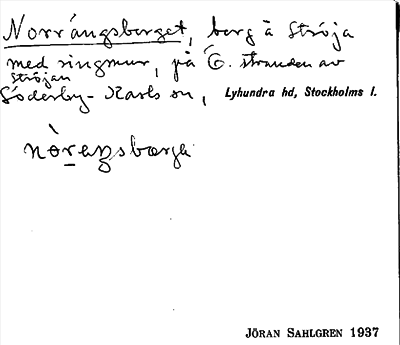 Norrängsberget, berg å Ströja
med ringmur, på Ö. stranden av
Ströjan
Söderby-Karls sn, Lyhundra hd, Stockholms l.
nòrengsbærgä
JÖRAN SAHLGREN 1937